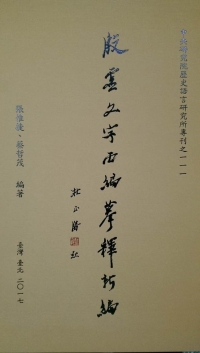 中央研究院歷史語言研究所專刊之一一一
殷虛文字丙編摹釋新編
杜正勝
張惟捷、蔡哲茂 編著
臺灣 臺北 二〇一七